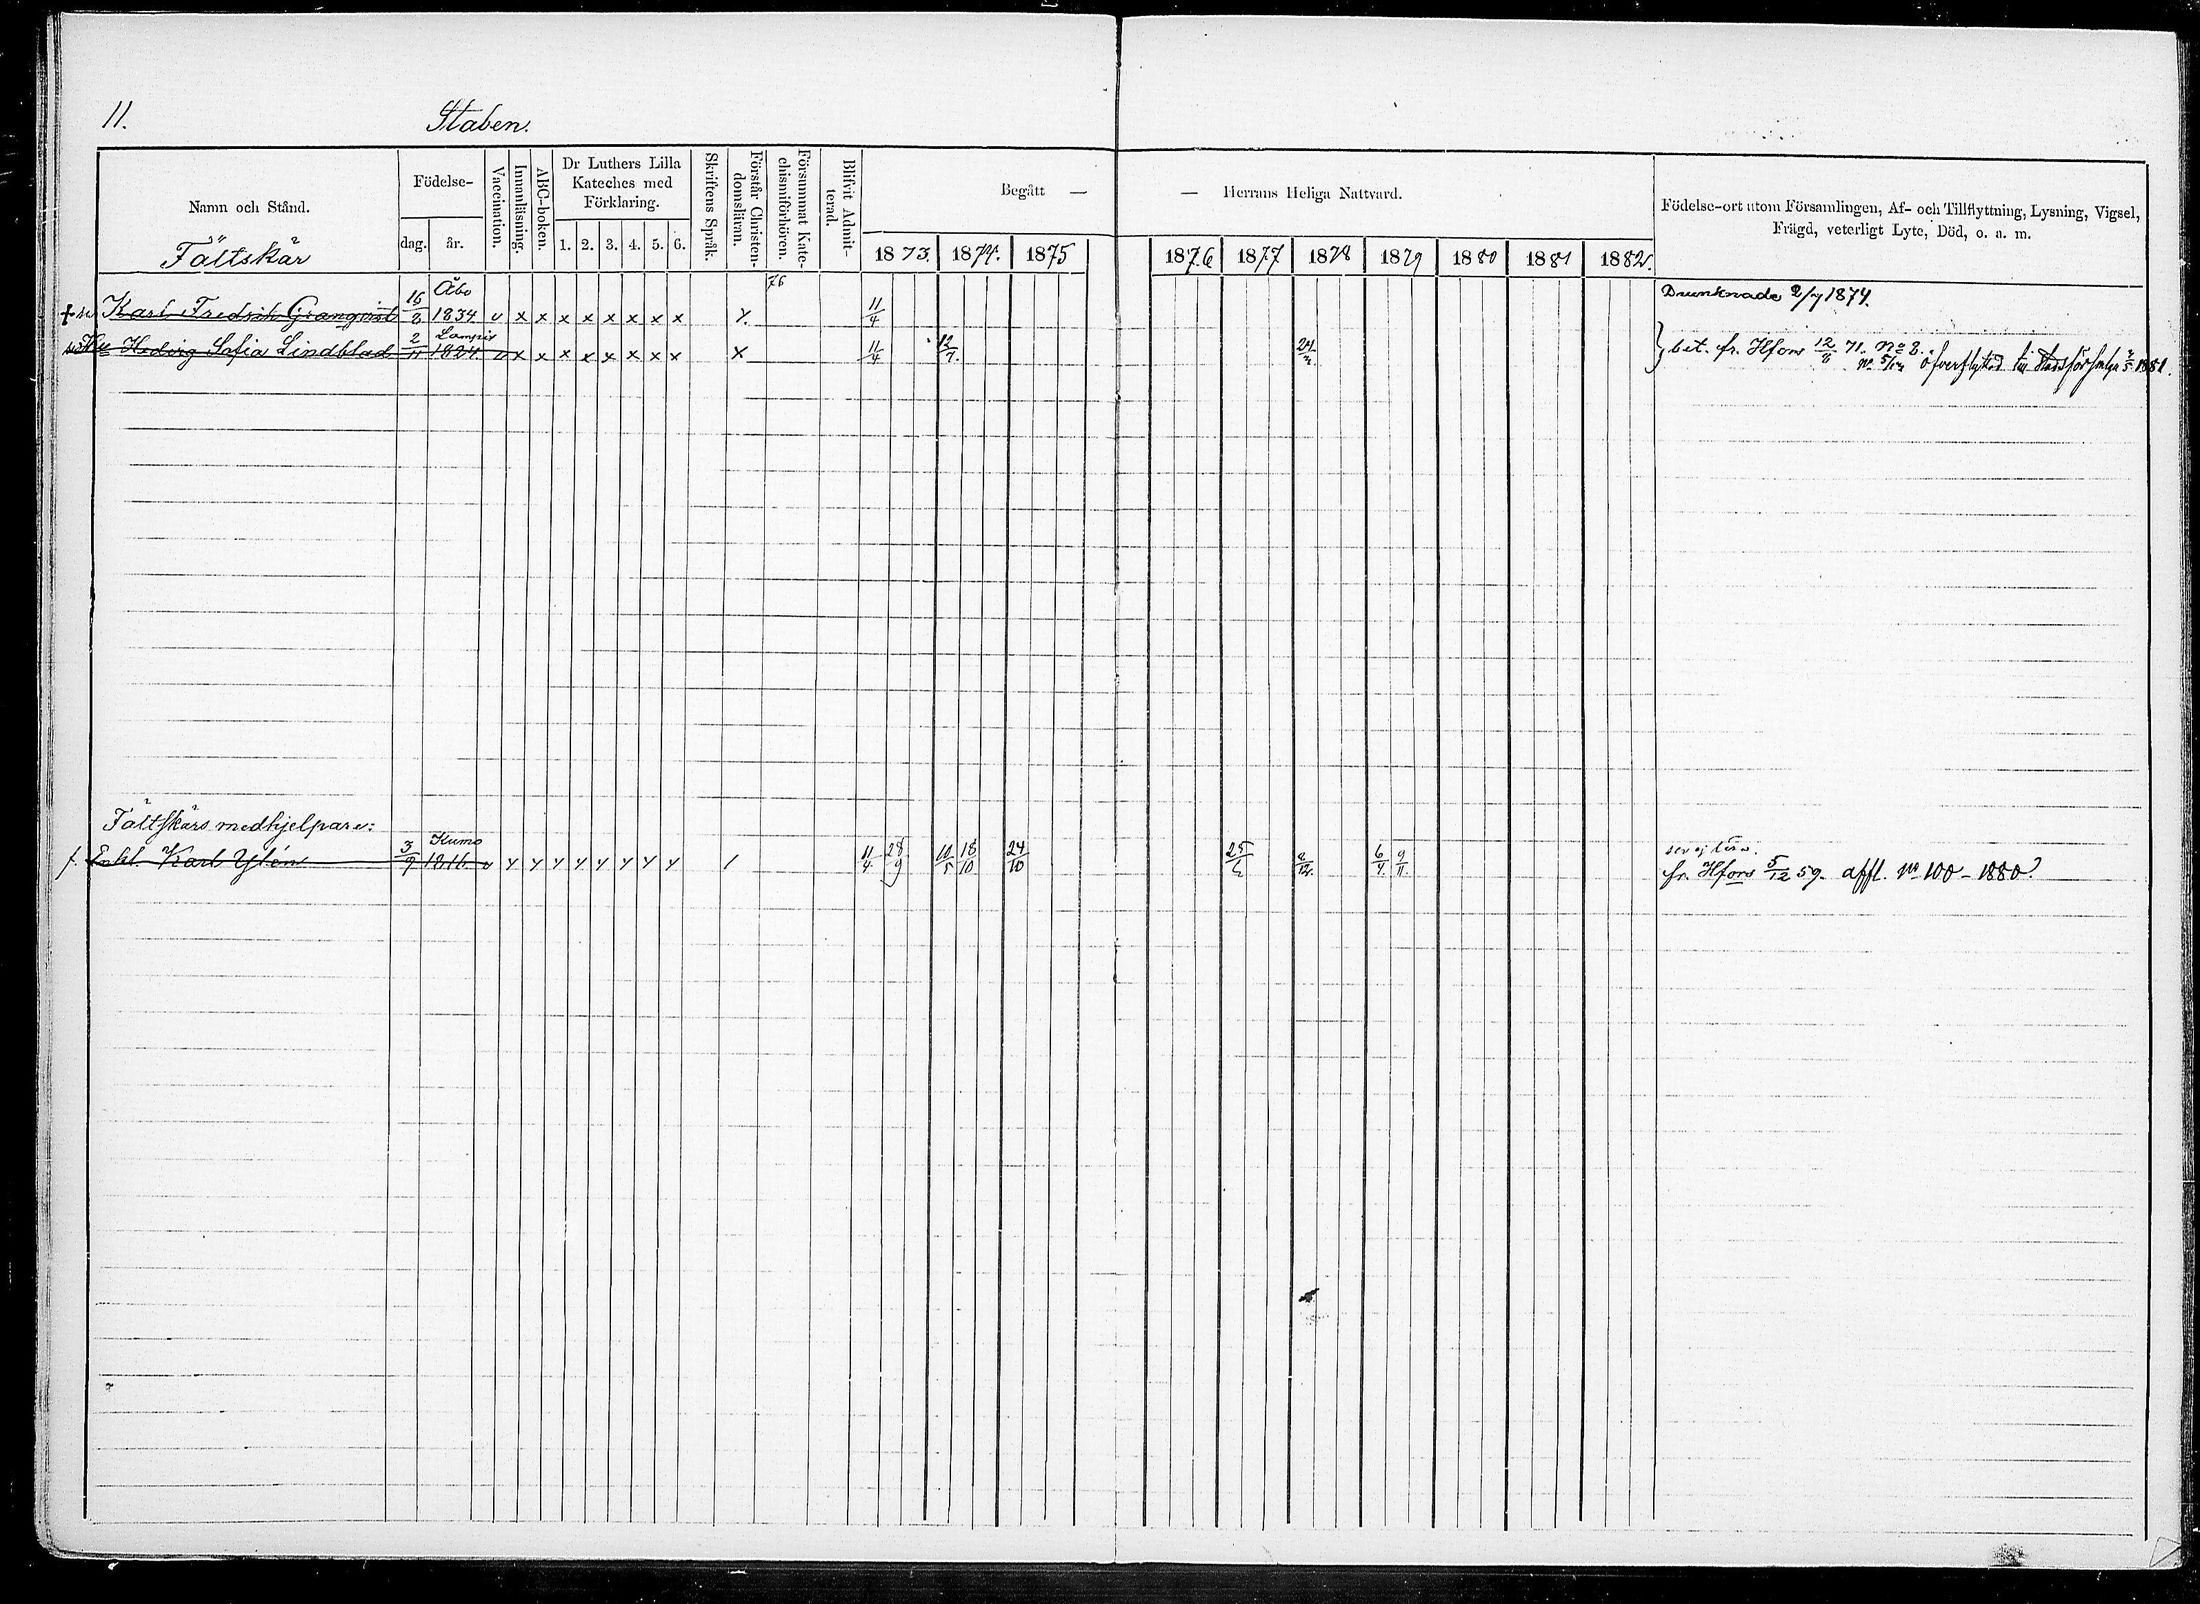 11.
Staben.
Namn och Stånd.
Fältskär
Födelse-
dag.
år.
Vaccination.
Innanläsning.
ABC-boken.
Dr Luthers Lilla
Kateches med
Förklaring.
1. 2. 3. 4. 5. 6.
Skriftens Språk.
Förstår Christen-
domsläran.
Försummat Kate-
chismiförhören.
Blifvit Admit-
terad.
Begått —
— Herrans Heliga Nattvard.
1873. 1874. 1875
1876 1877 1878 1879 1880 1881 1882.
Födelse-ort utom Församlingen, Af- och Tillflyttning, Lysning, Vigsel,
Frägd, veterligt Lyte, Död, o. a. m.
76
Åbo
Karl Fredrik Granqvist 16/8 1834 v x x x x x x x x x 11/4 Drunknade 2/7 1874.
Lampis
Hu Hedvig Sofia Lindblad 2/11 1824 v x x x x x x x x x 11/4 12/7. bet. fr. Hfors 12/8 71. No 8.
öfverflyttad till 1881.
Fältskärs medhjelpare:
Kumo
Enkl. Karl Ylén 3/9 1816. v y y y y y y y y / 11/4 28/9 10/5 18/10 24/10 2/12. 6/4. 9/11.
fr. Hfors 5/12 59. affl. No 100 - 1880.